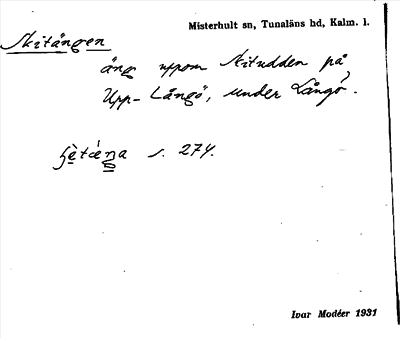 Misterhult sn, Tunaläns hd, Kalm. l.
Skitängen
äng uppom Skitudden på
Upp-Långö, under Långö.
s. 274.
Ivar Modéer 1931